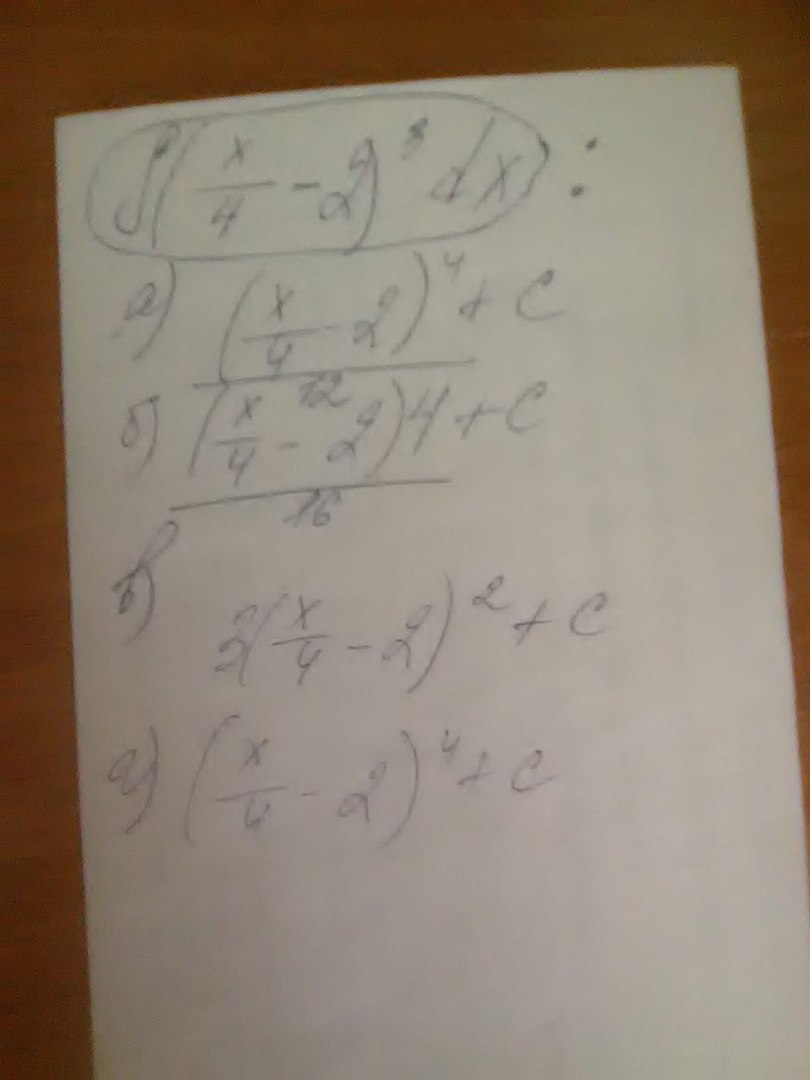 ∫(x/4 - 2)³ dx :
а) (x/4 - 2)⁴ + C
12
б) (x/4 - 2)4 + C
16
в)
2(x/4 - 2)² + C
г) (x/4 - 2)⁴ + C